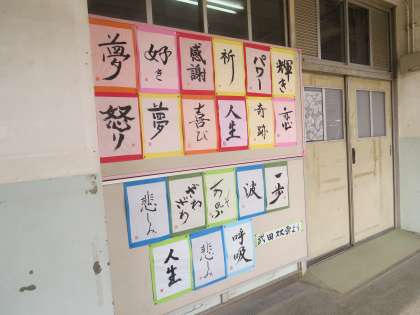 夢
好き
感謝
祈り
パワー
輝き
怒り
夢
喜び
人生
奇跡
恋
悲しみ
ざわざわ
波
一歩
人生
悲しみ
呼吸
武田双雲より